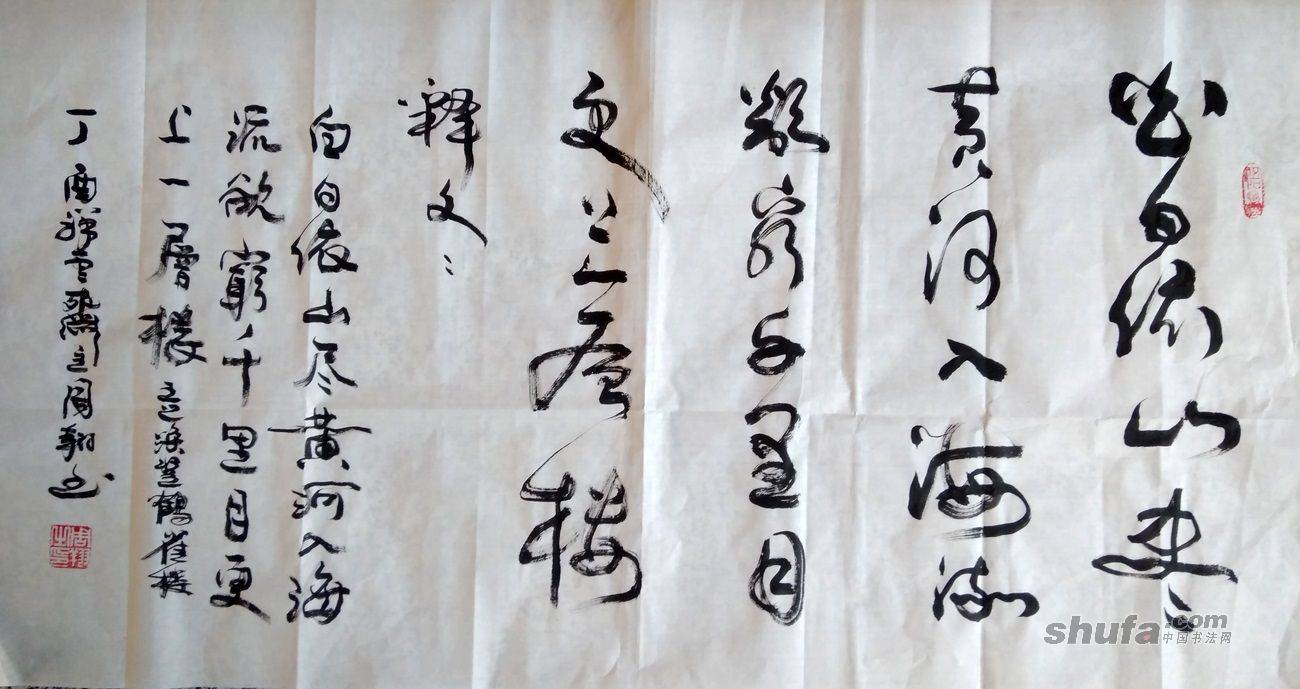 白日依山尽
黄河入海流
欲穷千里目
更上一层楼
释文:
白日依山尽黄河入海
流欲窮千里目更
上一層樓 王之涣登鶴雀樓
丁酉祥雲齋主周翔书
周翔之印
shufa.com
中国书法网